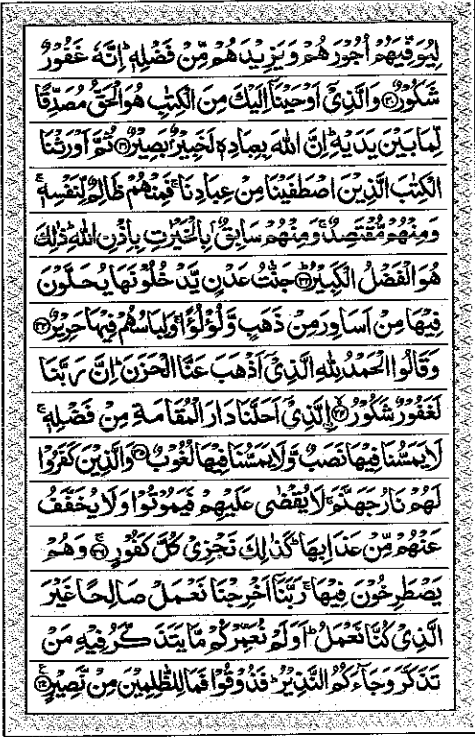 لِيُوَفِّيَهُمْ اُجُوْرَهُمْ وَيَزِيْدَهُمْ مِّنْ فَضْلِهٖ ؕ اِنَّهٗ غَفُوْرٌ
شَكُوْرٌ ﴿۳۰﴾ وَالَّذِيْٓ اَوْحَيْنَآ اِلَيْكَ مِنَ الْكِتٰبِ هُوَ الْحَقُّ مُصَدِّقًا
لِّمَا بَيْنَ يَدَيْهِ ؕ اِنَّ اللّٰهَ بِعِبَادِهٖ لَخَبِيْرٌۢ بَصِيْرٌ ﴿۳۱﴾ ثُمَّ اَوْرَثْنَا
الْكِتٰبَ الَّذِيْنَ اصْطَفَيْنَا مِنْ عِبَادِنَا ۚ فَمِنْهُمْ ظَالِمٌ لِّنَفْسِهٖ ۚ
وَمِنْهُمْ مُّقْتَصِدٌ ۚ وَمِنْهُمْ سَابِقٌۢ بِالْخَيْرٰتِ بِاِذْنِ اللّٰهِ ؕ ذٰلِكَ
هُوَ الْفَضْلُ الْكَبِيْرُ ﴿۳۲﴾ جَنّٰتُ عَدْنٍ يَّدْخُلُوْنَهَا يُحَلَّوْنَ
فِيْهَا مِنْ اَسَاوِرَ مِنْ ذَهَبٍ وَّلُؤْلُؤًا ۚ وَلِبَاسُهُمْ فِيْهَا حَرِيْرٌ ﴿۳۳﴾
وَقَالُوا الْحَمْدُ لِلّٰهِ الَّذِيْٓ اَذْهَبَ عَنَّا الْحَزَنَ ؕ اِنَّ رَبَّنَا
لَغَفُوْرٌ شَكُوْرُ ﴿۳۴﴾ ۨالَّذِيْٓ اَحَلَّنَا دَارَ الْمُقَامَةِ مِنْ فَضْلِهٖ ۚ
لَا يَمَسُّنَا فِيْهَا نَصَبٌ وَّلَا يَمَسُّنَا فِيْهَا لُغُوْبٌ ﴿۳۵﴾ وَالَّذِيْنَ كَفَرُوْا
لَهُمْ نَارُ جَهَنَّمَ ۚ لَا يُقْضٰى عَلَيْهِمْ فَيَمُوْتُوْا وَلَا يُخَفَّفُ
عَنْهُمْ مِّنْ عَذَابِهَا ؕ كَذٰلِكَ نَجْزِيْ كُلَّ كَفُوْرٍ ﴿۳۶﴾ وَهُمْ
يَصْطَرِخُوْنَ فِيْهَا ۚ رَبَّنَآ اَخْرِجْنَا نَعْمَلْ صَالِحًا غَيْرَ
الَّذِيْ كُنَّا نَعْمَلُ ؕ اَوَلَمْ نُعَمِّرْكُمْ مَّا يَتَذَكَّرُ فِيْهِ مَنْ
تَذَكَّرَ وَجَآءَكُمُ النَّذِيْرُ ؕ فَذُوْقُوْا فَمَا لِلظّٰلِمِيْنَ مِنْ نَّصِيْرٍ ﴿۳۷﴾